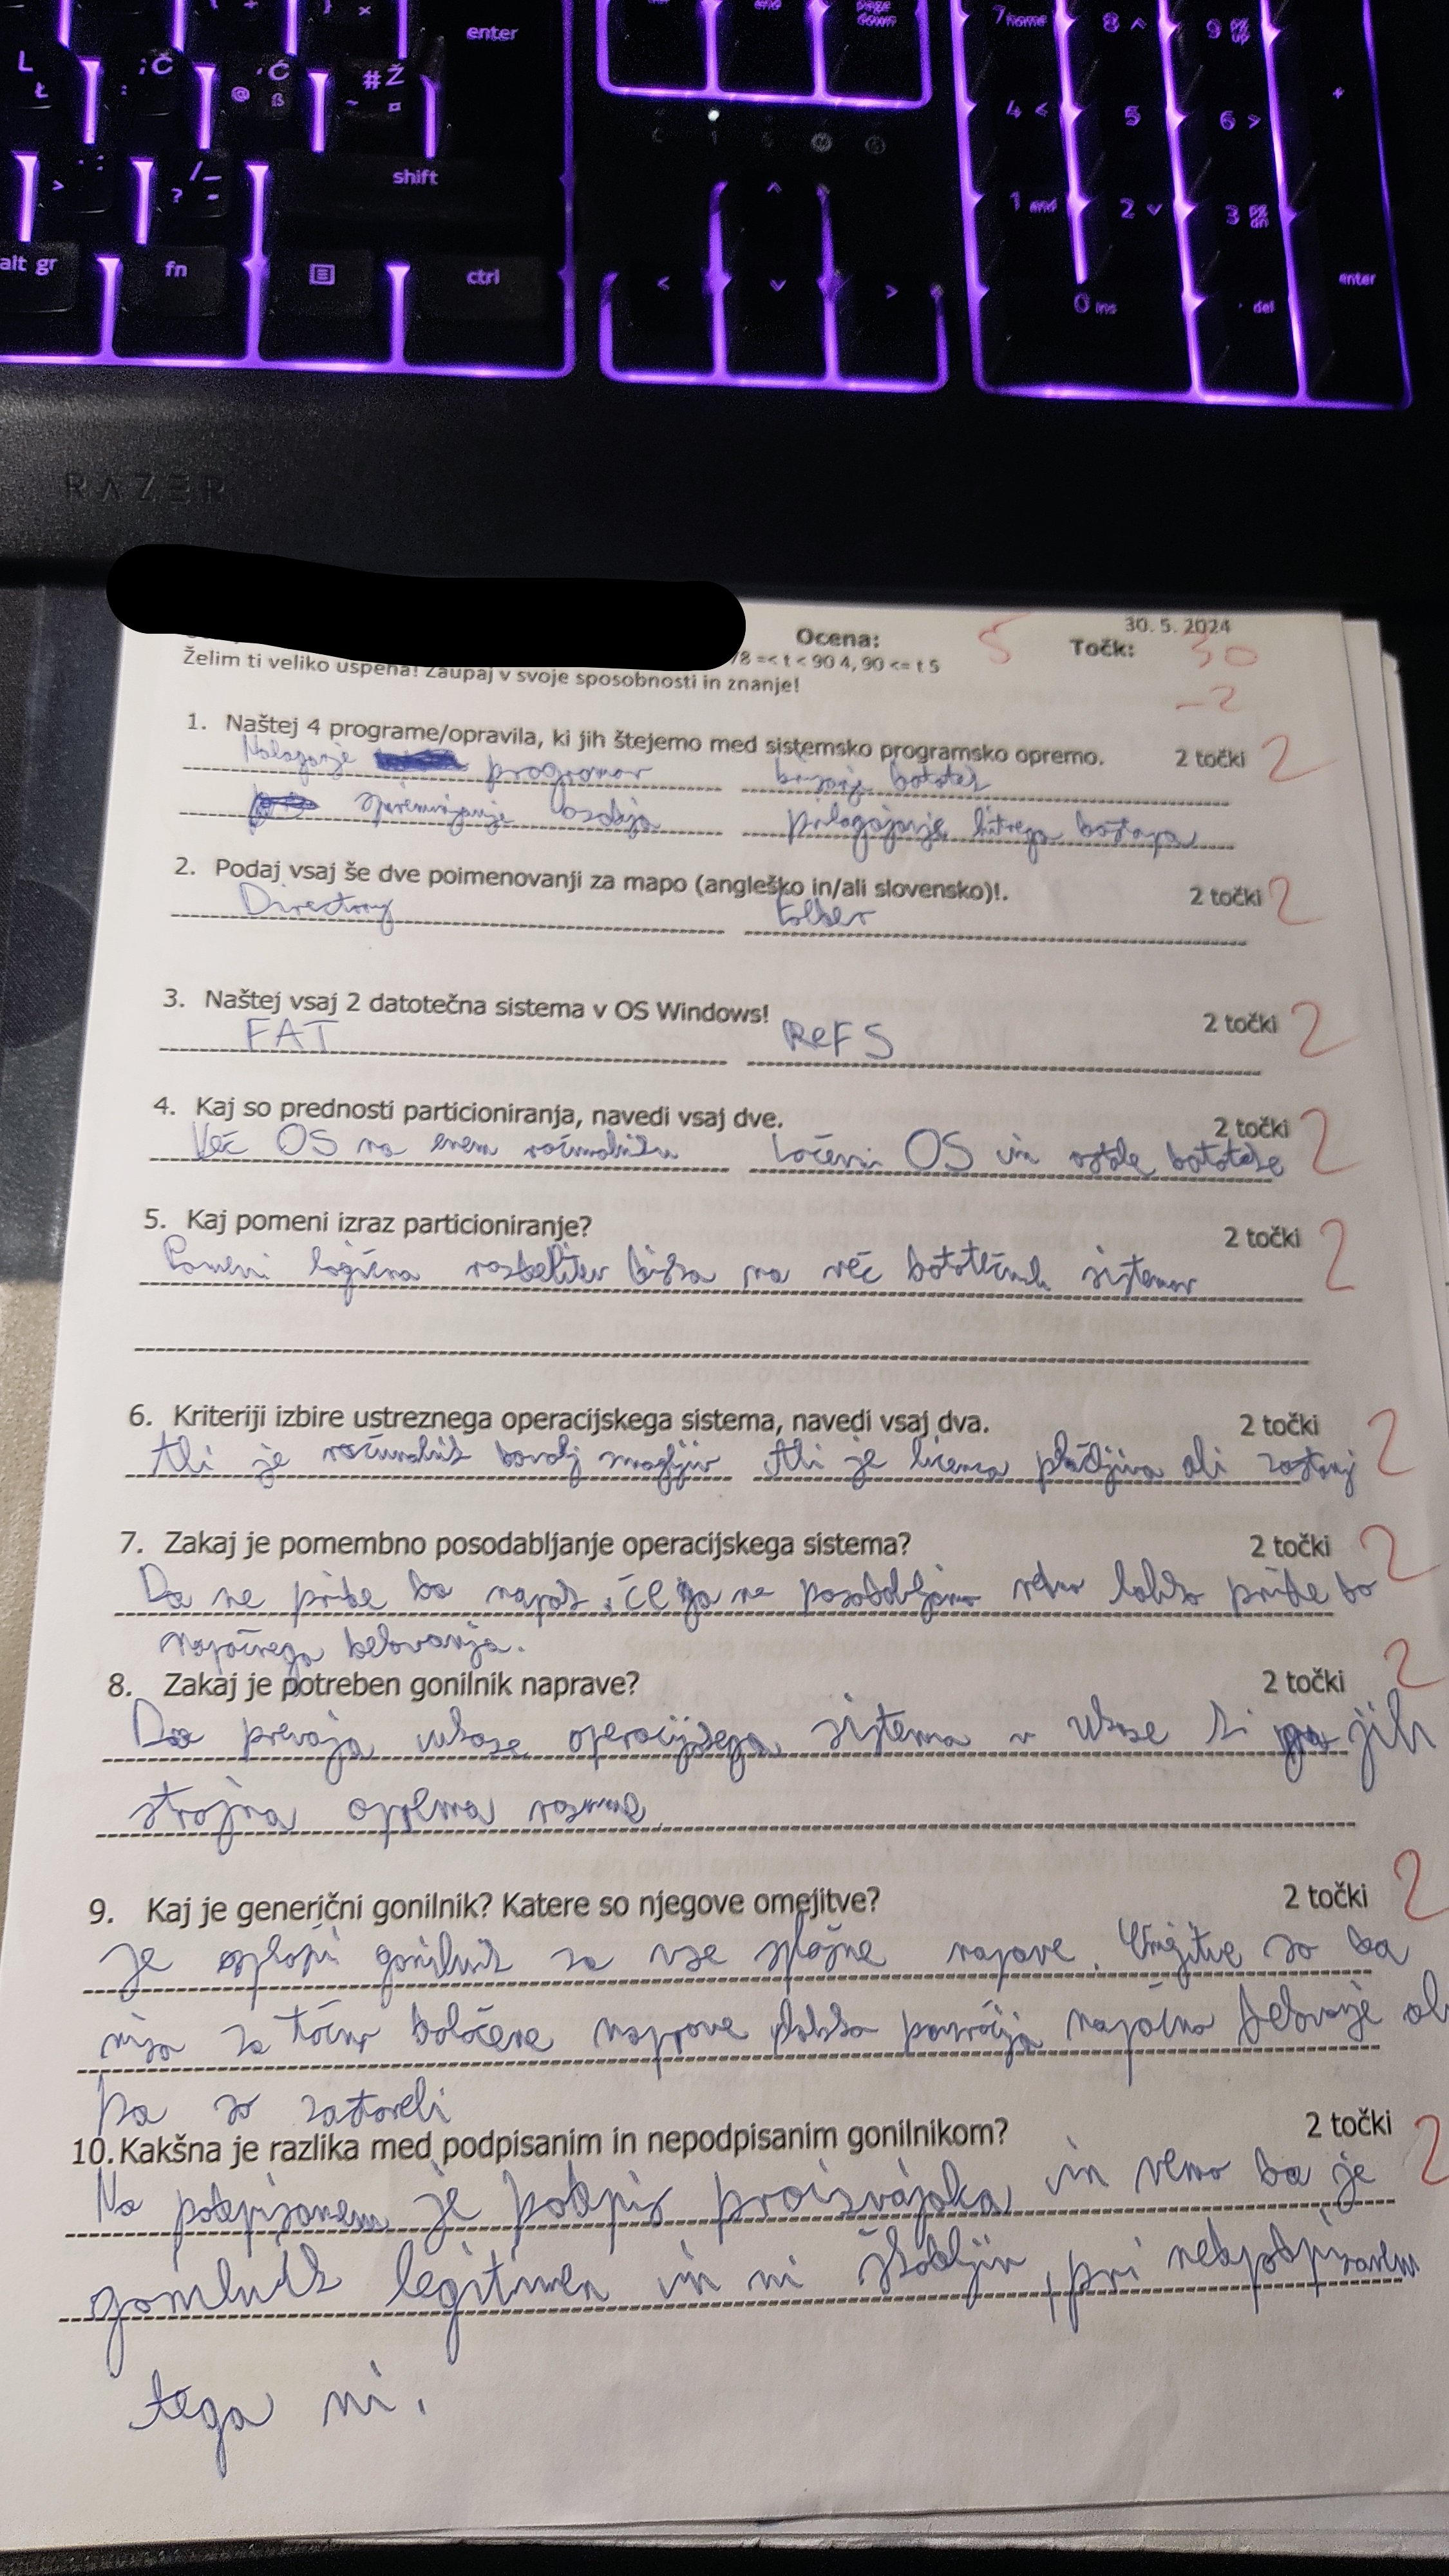 enter
7 home 8 9 pg up
L Ł ; : Č ' @ Ć ß # ~ Ž ¤
4 5 6 +
shift
1 end 2 3 pg dn
alt gr fn ctrl
0 ins . del enter
RAZER
30. 5. 2024
Ocena: 5 Točk: 30
78 =< t < 90 4, 90 <= t 5
-2
Želim ti veliko uspeha! Zaupaj v svoje sposobnosti in znanje!
1. Naštej 4 programe/opravila, ki jih štejemo med sistemsko programsko opremo. 2 točki 2
Nalaganje programov datotek
spreminjanje ozadja prilagajanje hitrega dostopa
2. Podaj vsaj še dve poimenovanji za mapo (angleško in/ali slovensko)!. 2 točki 2
Directory folder
3. Naštej vsaj 2 datotečna sistema v OS Windows! 2 točki 2
FAT ReFS
4. Kaj so prednosti particioniranja, navedi vsaj dve. 2 točki 2
Več OS na enem računalniku Ločeni OS in ostale datoteke
5. Kaj pomeni izraz particioniranje? 2 točki 2
Pomeni logična razdelitev diska na več datotečnih sistemov
6. Kriteriji izbire ustreznega operacijskega sistema, navedi vsaj dva. 2 točki 2
Ali je računalnik dovolj zmogljiv Ali je licenca plačljiva ali zastonj
7. Zakaj je pomembno posodabljanje operacijskega sistema? 2 točki 2
Da ne pride do napak, če ga ne posodabljamo redno lahko pride do
napačnega delovanja.
8. Zakaj je potreben gonilnik naprave? 2 točki 2
Da prevaja ukaze operacijskega sistema v ukaze ki jih
strojna oprema razume
9. Kaj je generični gonilnik? Katere so njegove omejitve? 2 točki 2
Je splošni gonilnik za vse splošne naprave. Omejitve so da
niso za točno določene naprave lahko povročijo napačno delovanje ali
pa so zastareli
10. Kakšna je razlika med podpisanim in nepodpisanim gonilnikom? 2 točki 2
Na podpisanem je podpis proizvajalca in vemo da je
gonilnik legitimen in ni škodljiv, pri nepodpisanem
tega ni.